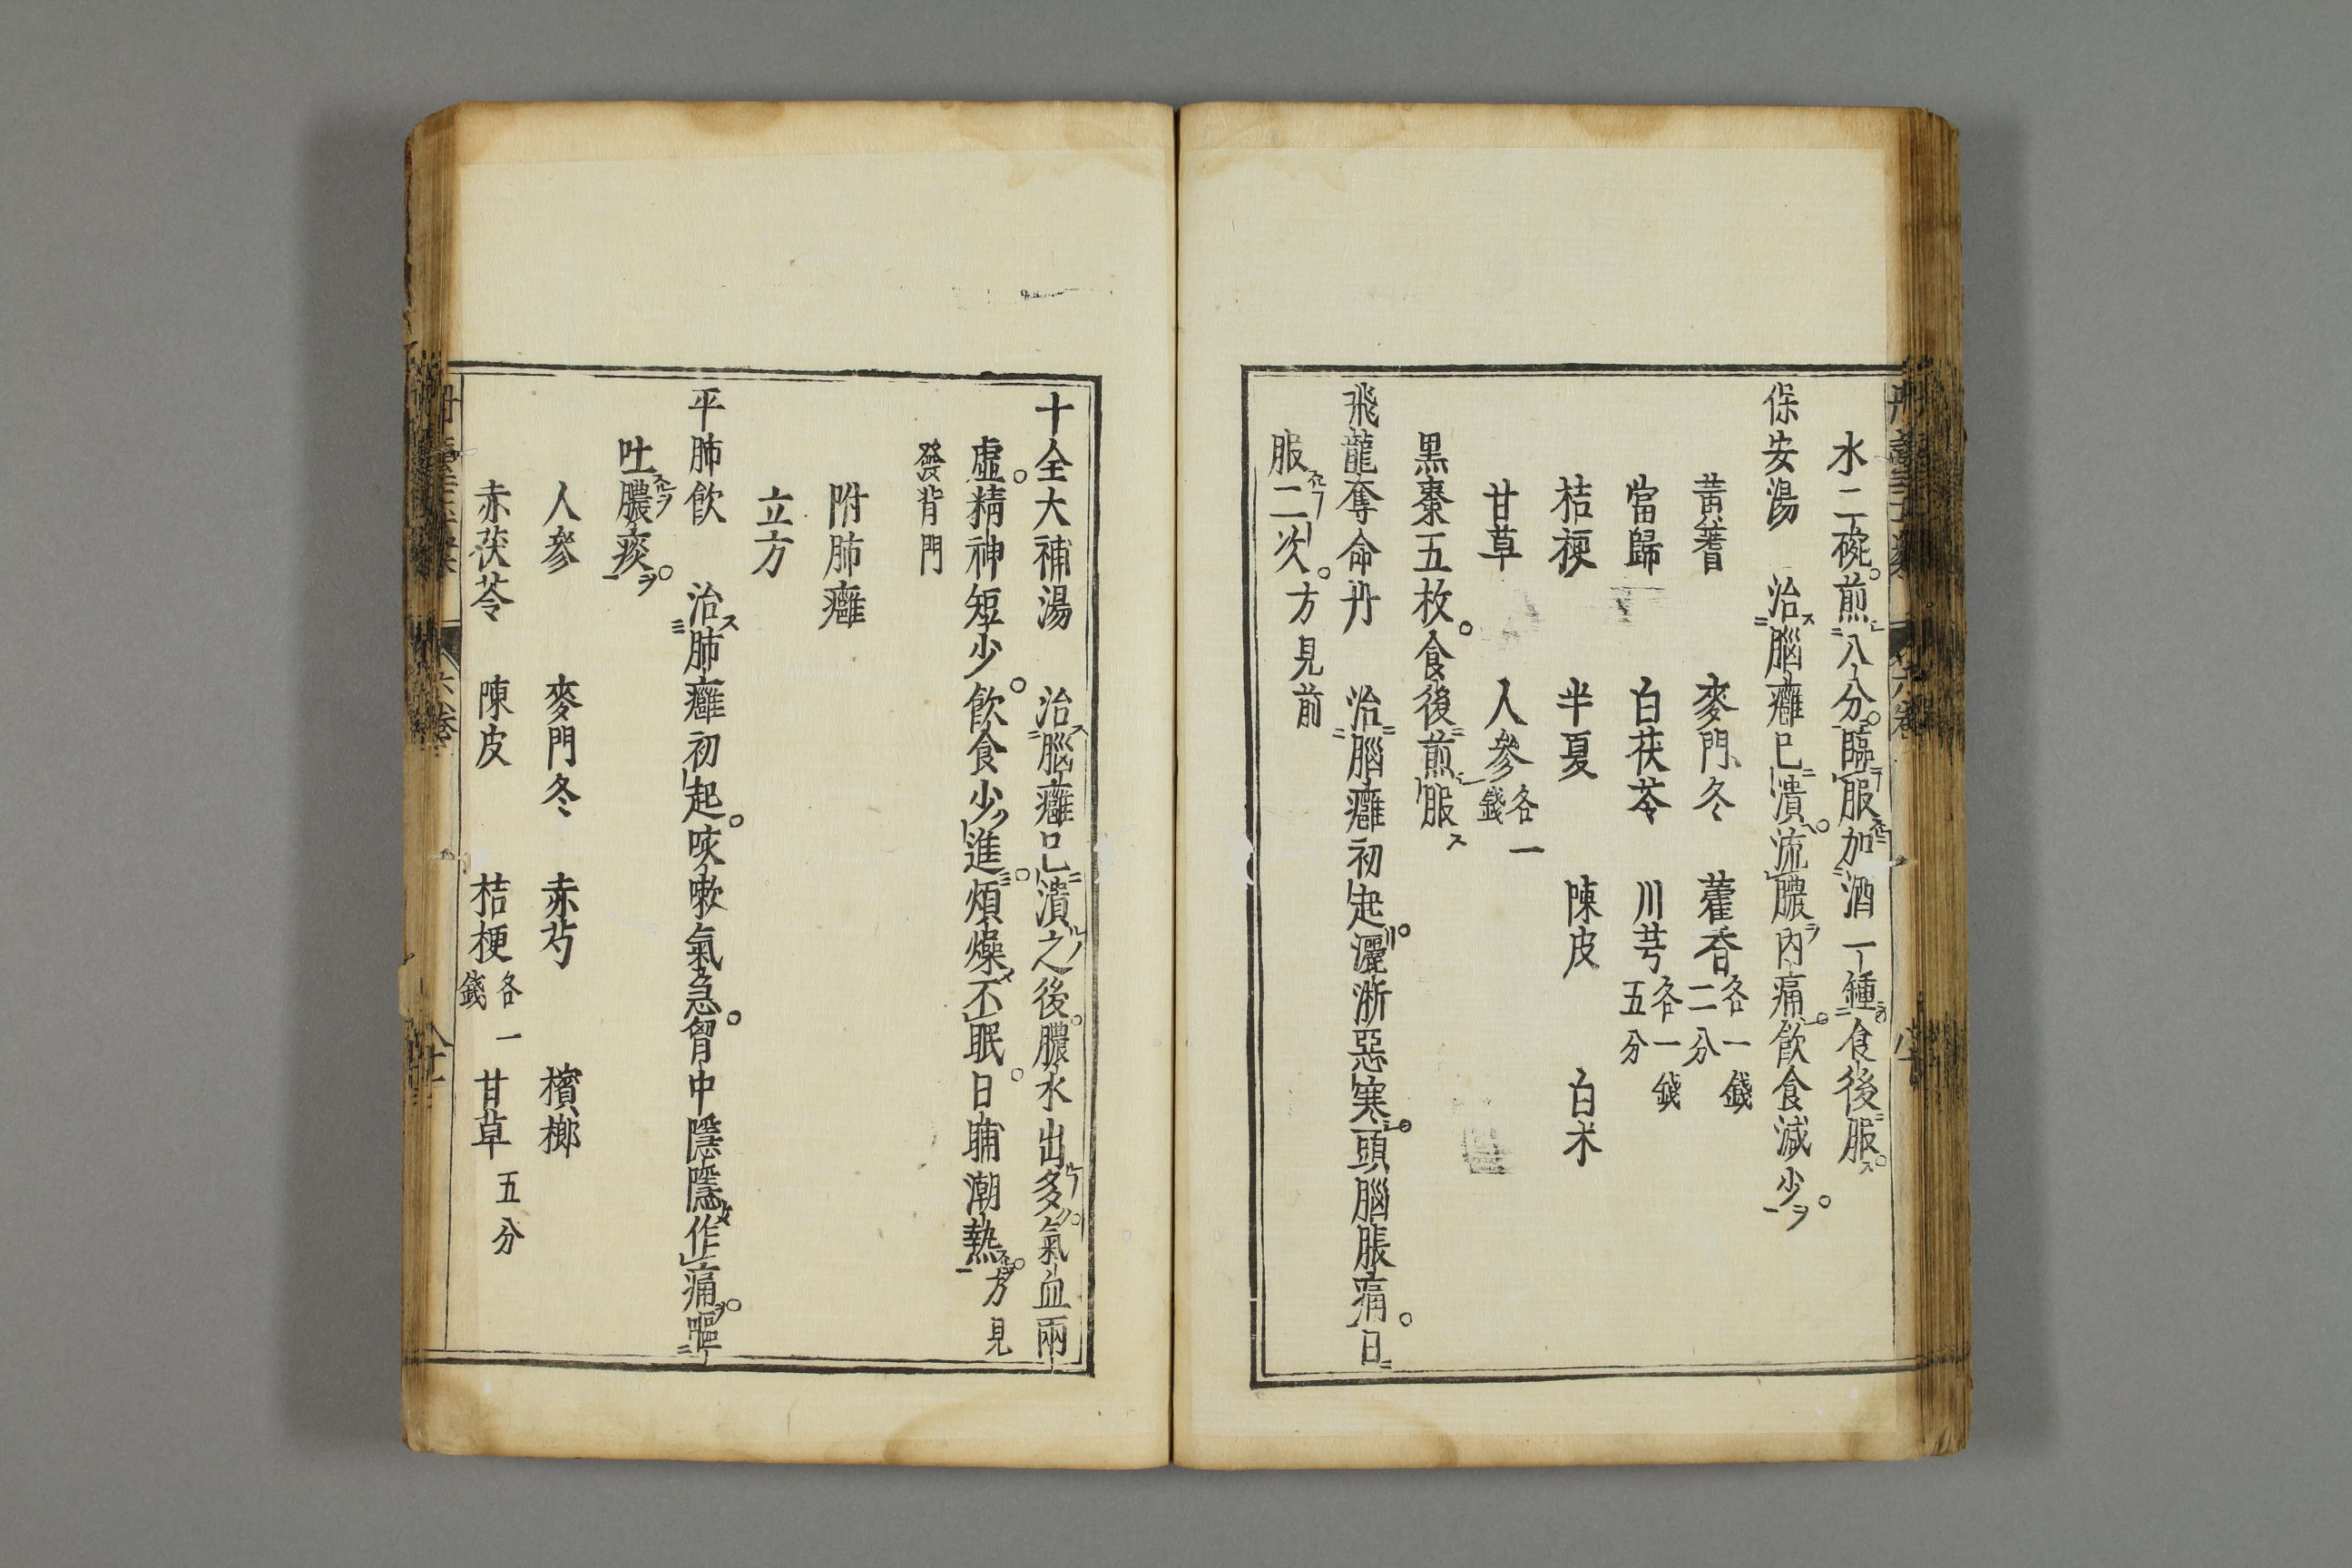 水二碗煎八分臨服加酒一鍾食後服
保安湯　治腦癰已潰流膿內痛飲食減少
黃耆　麥門冬　藿香各一錢二分
當歸　白茯苓　川芎各一錢五分
桔梗　半夏　陳皮　白朮
甘草　人參各一錢
黑棗五枚食後煎服
飛龍奪命丹　治腦癰初起灑淅惡寒頭腦脹痛日
服二次方見前
十全大補湯　治腦癰已潰之後膿水出多氣血兩
虛精神短少飲食少進煩燥不眠日晡潮熱方見
發背門
附肺癰
立方
平肺飲　治肺癰初起咳嗽氣急胷中隱隱作痛嘔
吐膿痰
人參　麥門冬　赤芍　檳榔
赤茯苓　陳皮　桔梗各一錢　甘草五分